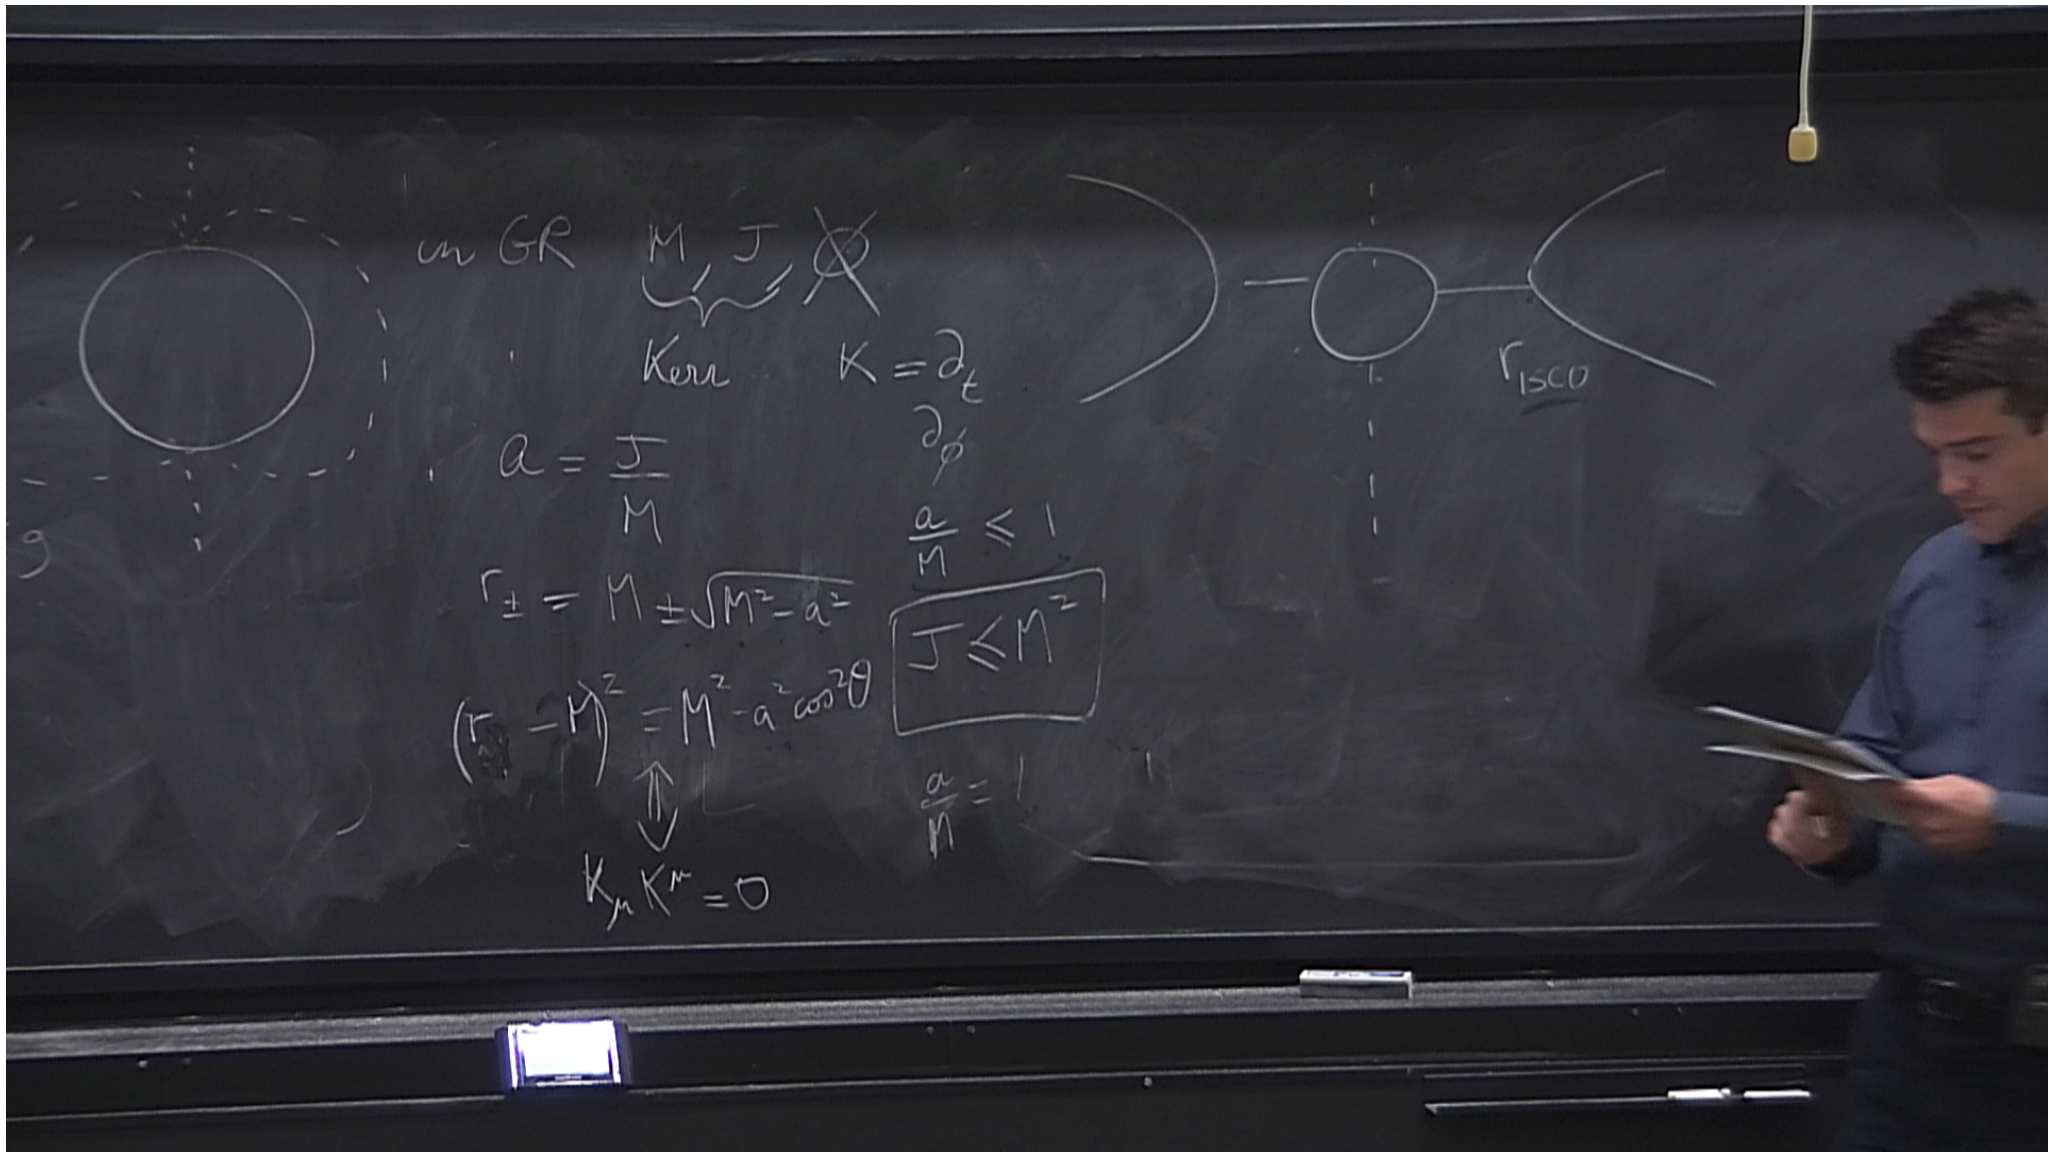 in GR M, J, Q
Kerr K = ∂_t
∂_φ
a = J/M
a/M ≤ 1
r_± = M ± √(M² - a²)
J ≤ M²
(r - M)² = M² - a² cos²θ
⇕
K_μ K^μ = 0
a/M = 1
r_ISCO
g